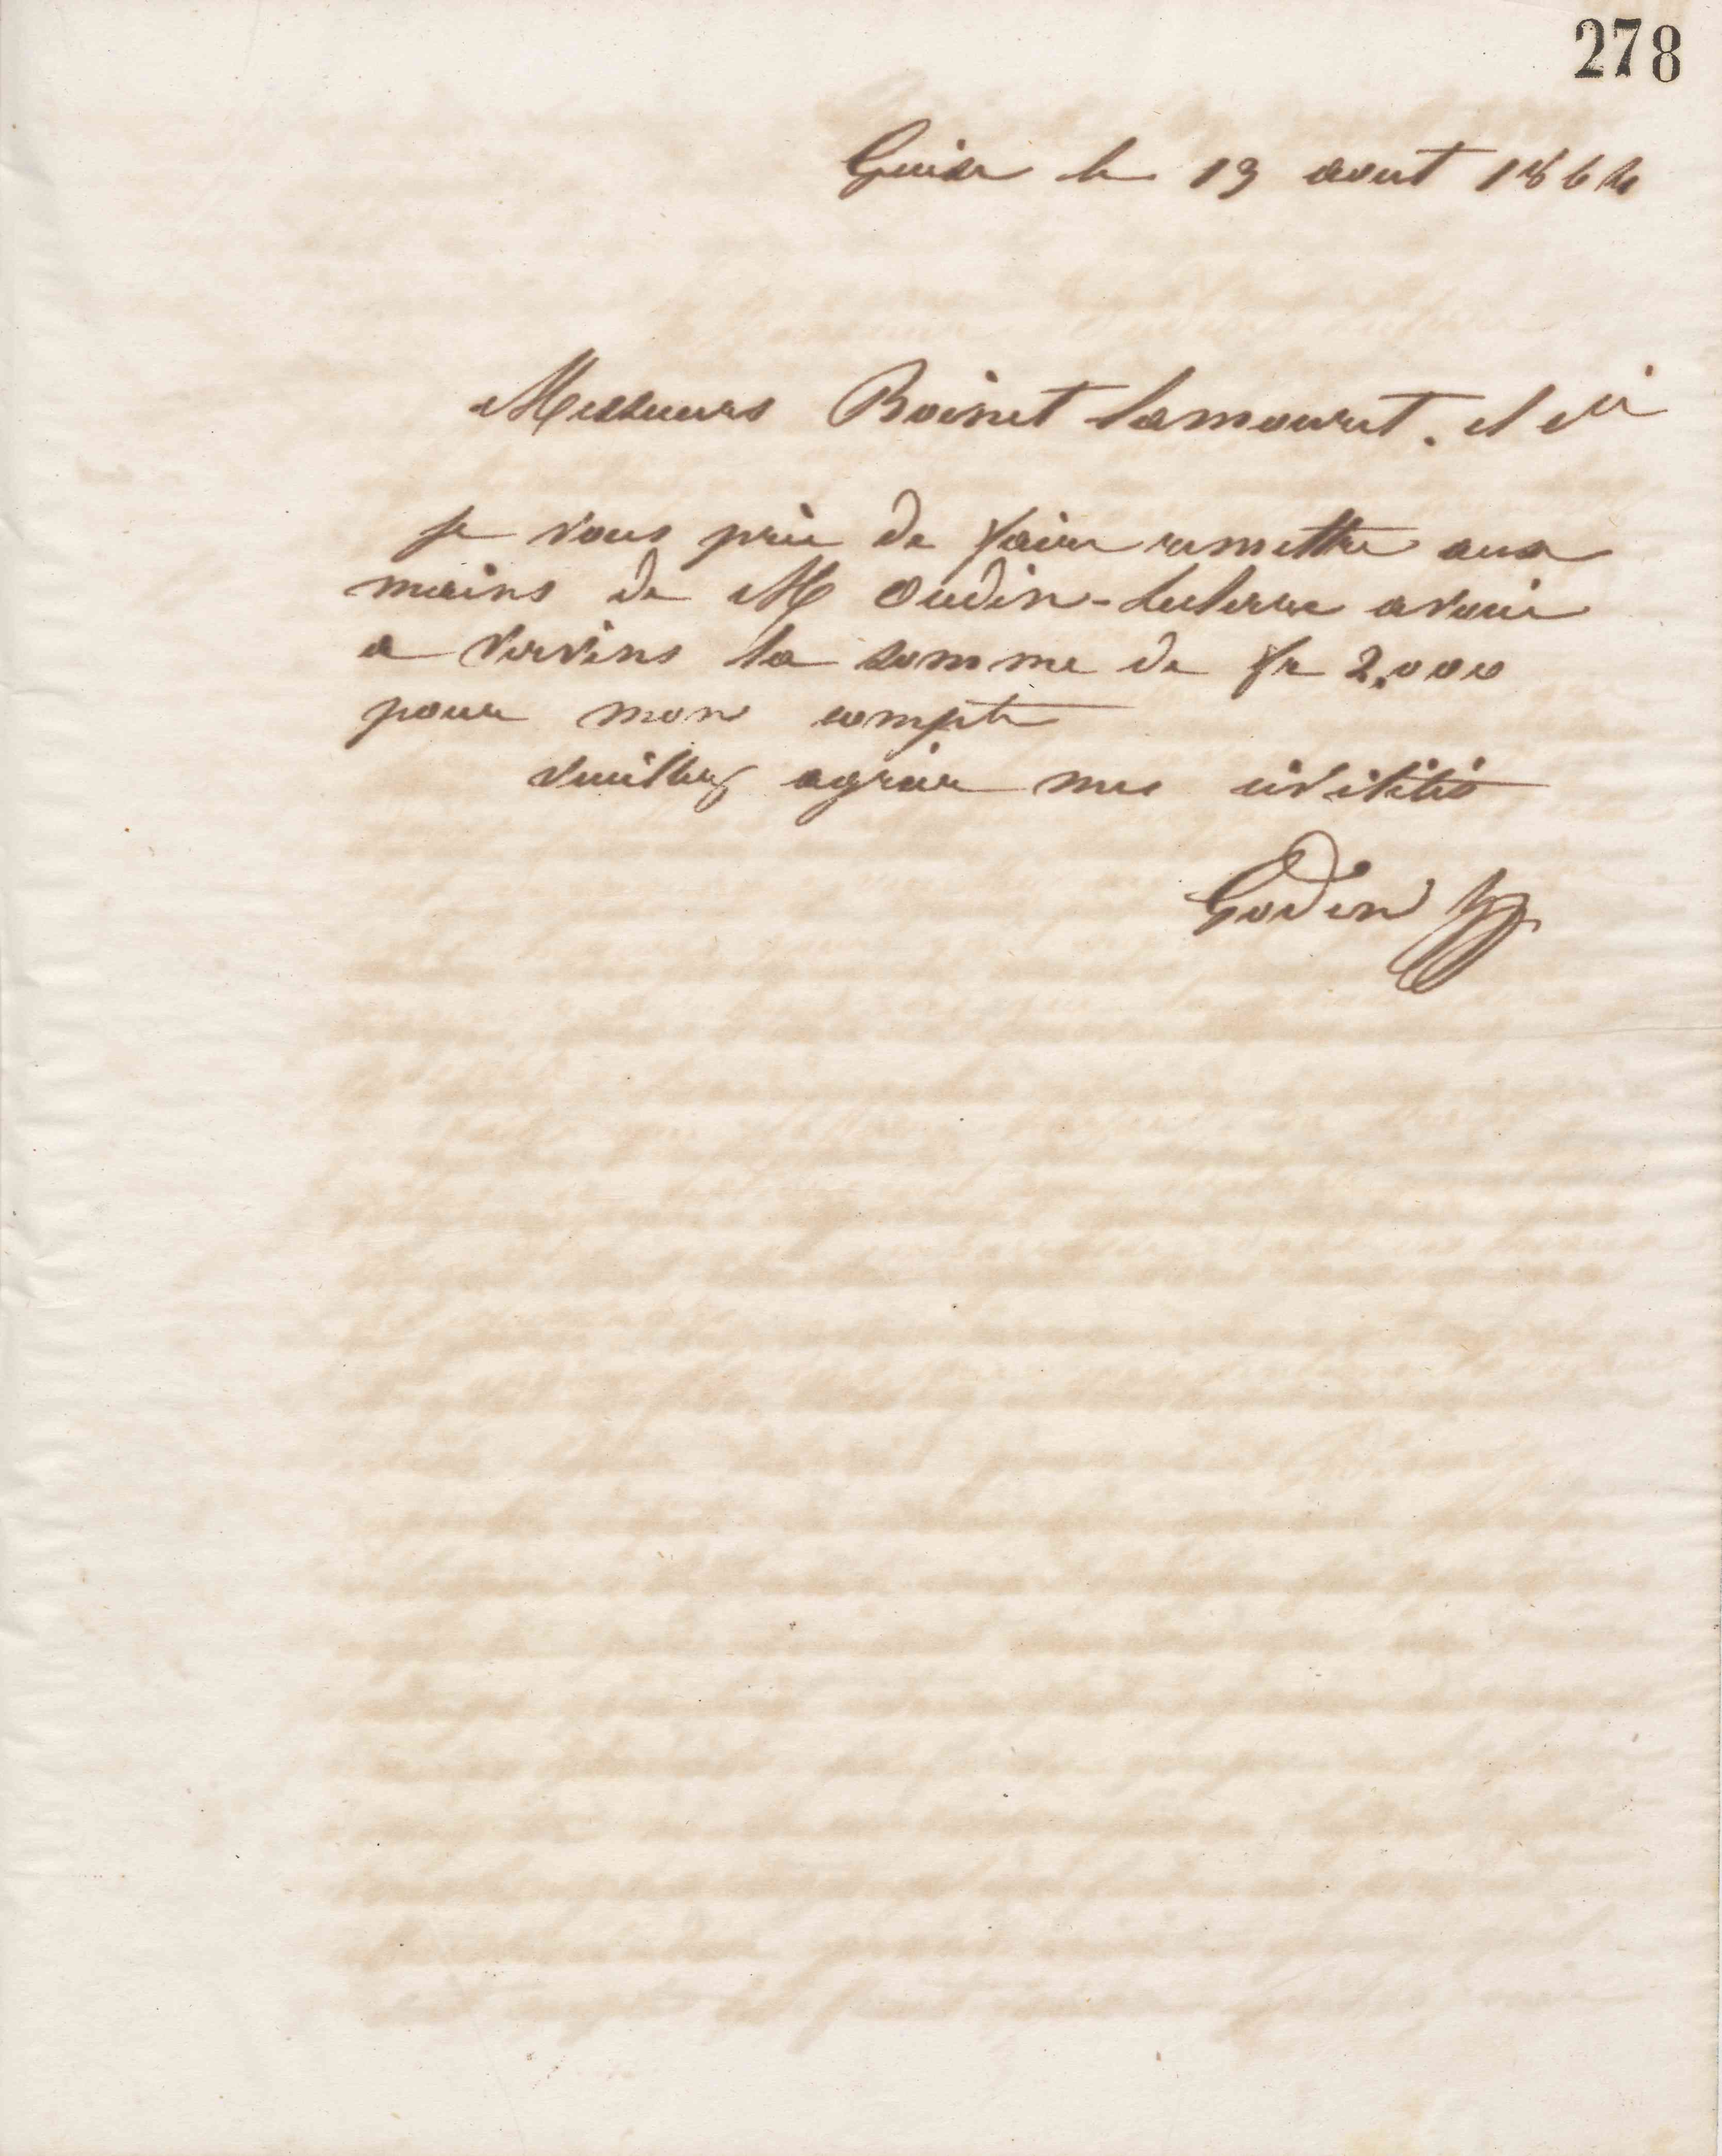 278
Guise le 19 aout 1864
Messieurs Boinet Lamouret. et Cie
je vous prie de faire remettre aux
mains de M Oudin-Leclerre avoué
a Vervins la somme de fr 2,000
pour mon compte
Veuillez agréer mes civilités
Godin